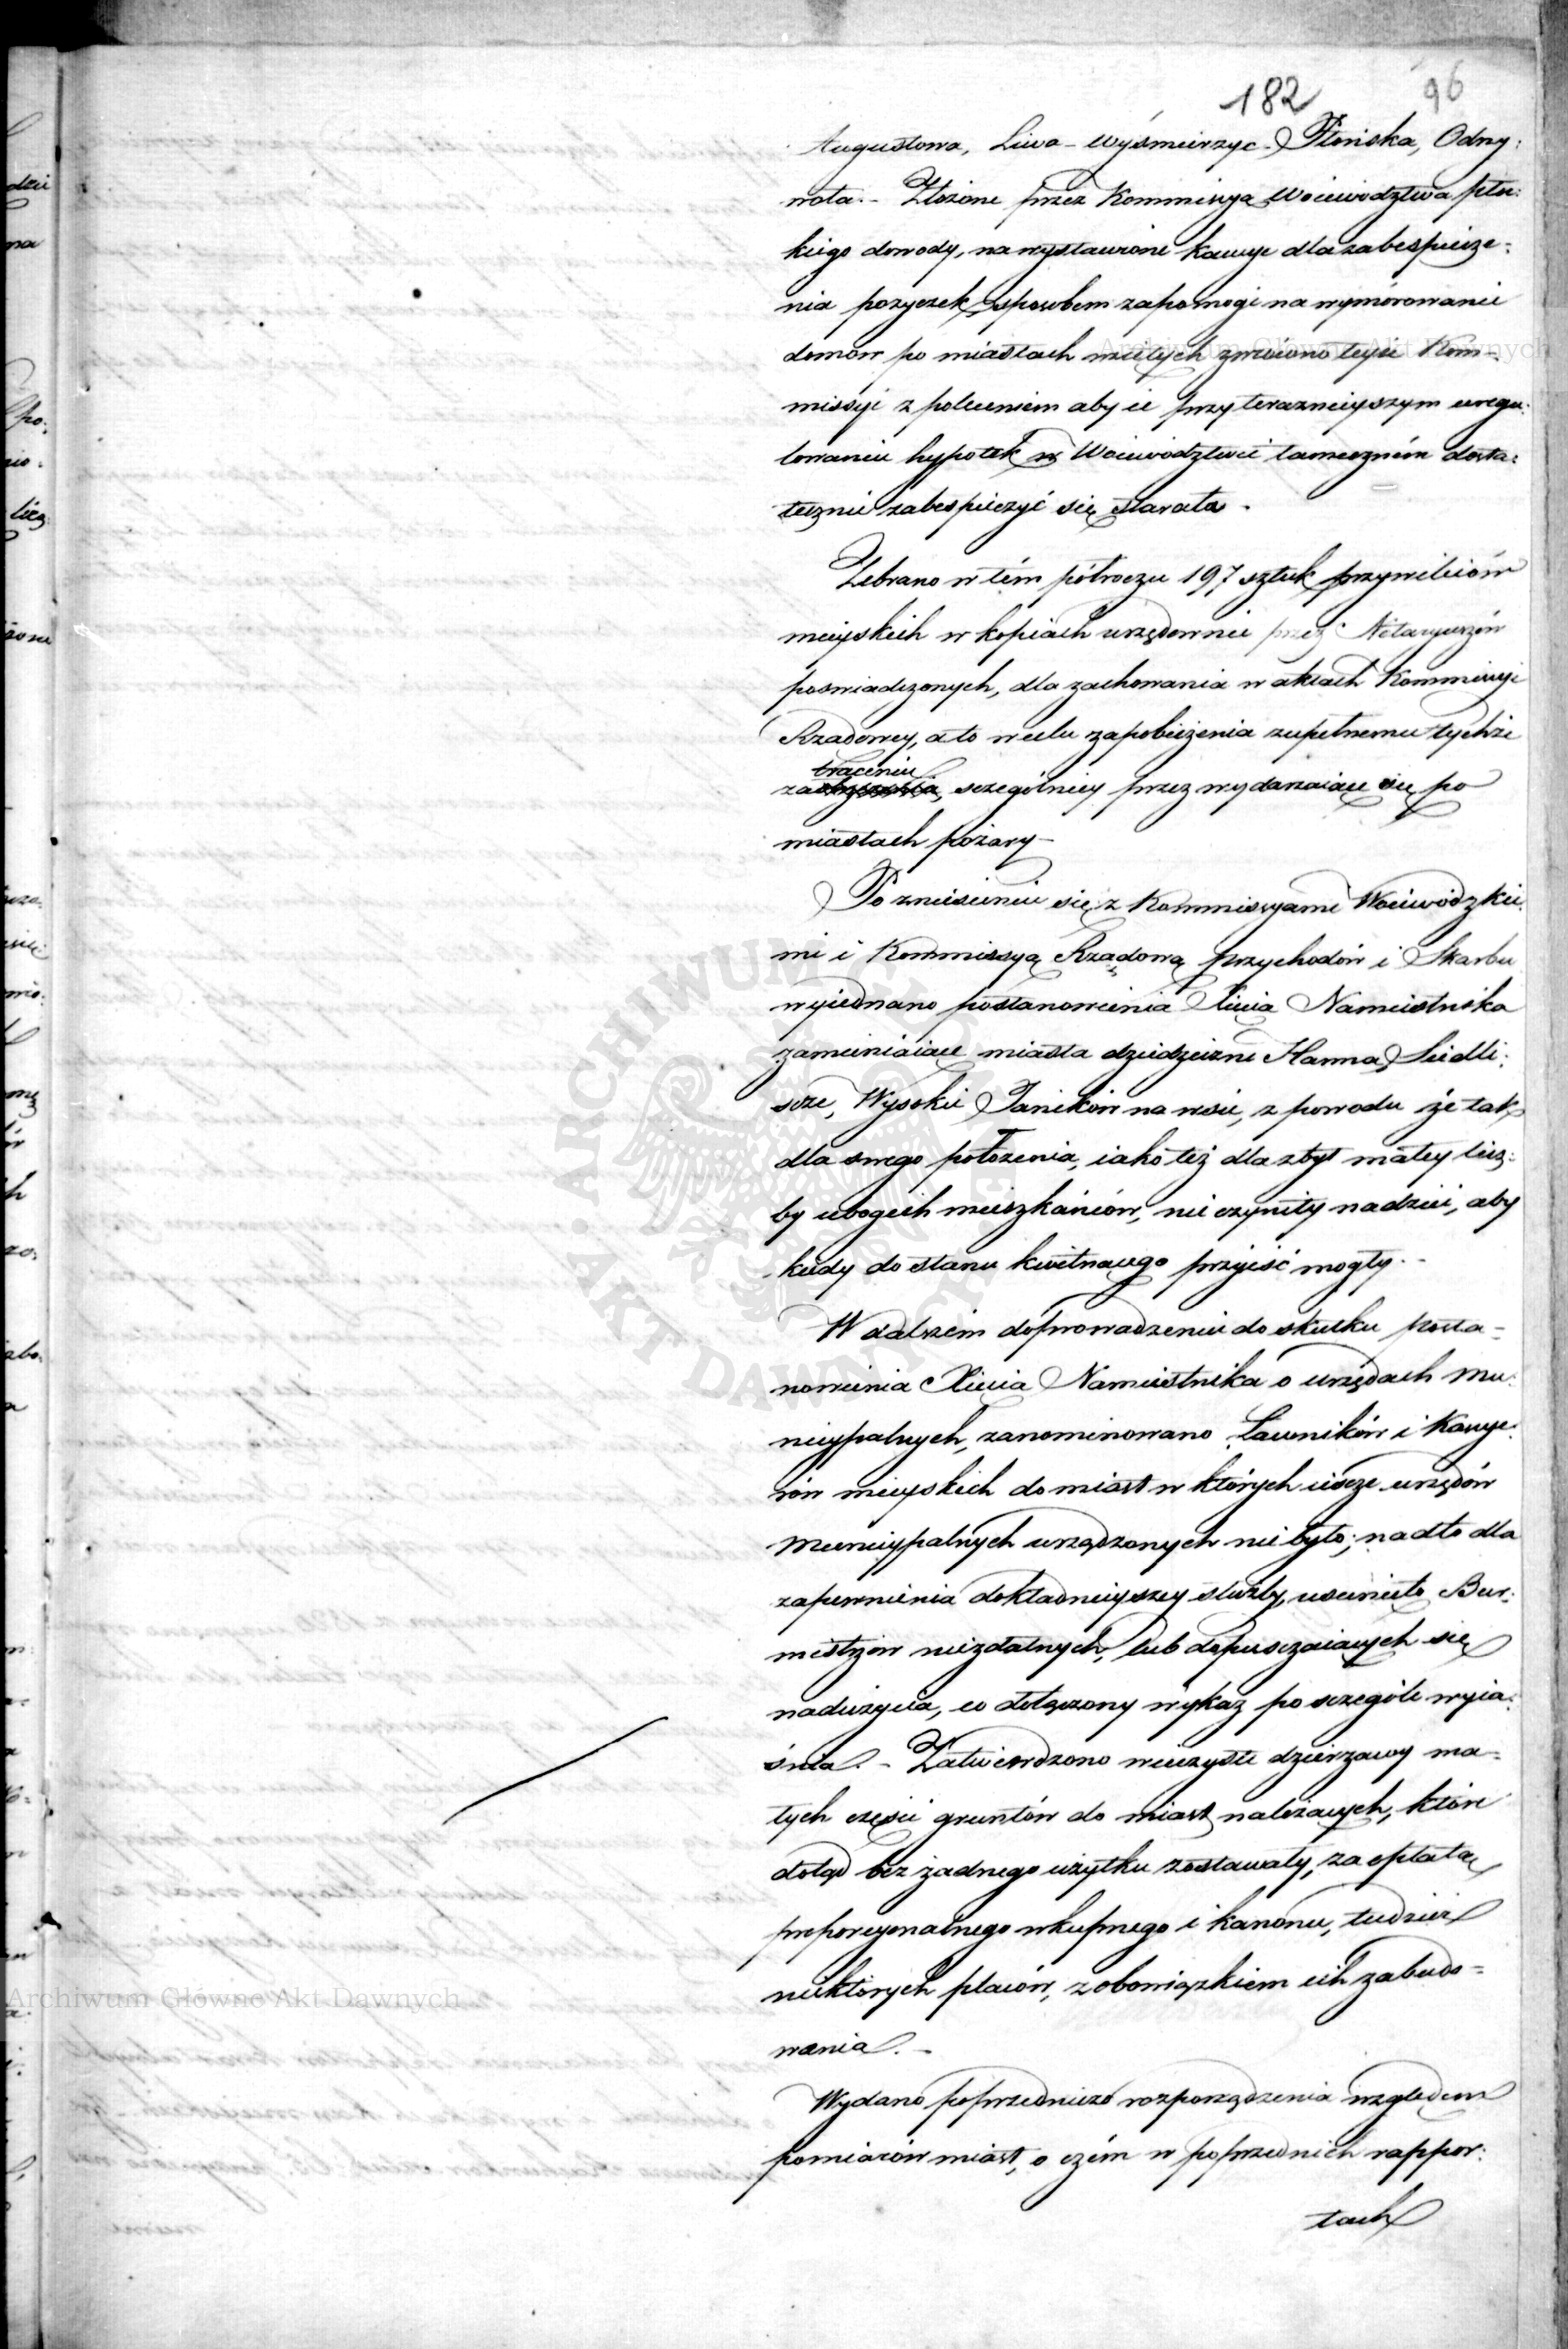 182 96
Augustowa, Liwa - Wyśmierzyc - Płońska, Odrzy:
wola. - Złożone przez Kommissyą Woiewodztwa płoc:
kiego dowody, na wystawione kaucye dla zabespiecze=
nia pozyczek sposobem zapomogi na wymórowanie
domów po miastach wziętych zwrócono teyże Kom-
missyi z poleceniem aby ie przy teraznieyszym uregu:
lowaniu hypotek w Woiewodztwie tameczném dosta:
tecznie zabespieczyć się starała.
Zebrano w tém półroczu 197 sztuk przywileiów
mieyskich w kopiach urzędownie przez Notaryuszów
poswiadczonych, dla zachowania w aktach Kommissyi
Rządowey, a to w celu zapobieżenia zupełnemu tychże
traceniu
za, szczególniey przez wydarzaiące się po
miastach pożary -
Po zniesieniu się z Kommissyami Woiewódzkie:
mi i Kommissyą Rządową przychodów i Skarbu
wyiednano postanowienia Xięcia Namiestnika
zamieniaiące miasta dziedziczne Hanna, Siedli:
scze, Wysokie Janików na wsie, z powodu że tak
dla swego położenia, iako też dla zbyt małey licz:
by ubogich mieszkańców, nie czyniły nadziei, aby
kiedy do stanu kwitnącego przyiść mogły. -
W dalszém doprowadzeniu do skutku posta=
nowienia Xięcia Namiestnika o urzędach mu:
nicypalnych, zanominowano Ławników i Kassye:
rów mieyskich do miast w których ieszcze urzędów
Municypalnych urządzonych nie było; nadto dla
zapewnienia dokładnieyszey służby, usunięto Bur:
mistrzów niezdatnych, lub dopusczaiących się
nadużycia, co dołączony wykaz po szczególe wyia:
śnia. - Zatwierdzono wieczyste dzierzawy ma=
łych części gruntów do miast należących, które
dotąd bez żadnego użytku zostawały, za opłatą
proporcyonalnego wkupnego i kanonu, tudzież
niektórych placów, z obowiązkiem ich zabudo=
wania. -
Wydano poprzednicze rozporządzenia względem
pomiarów miast, o czém w poprzednich rappor:
tach
Archiwum Główne Akt Dawnych
Archiwum Główne Akt Dawnych
ARCHIWUM
AKT DAWNYCH